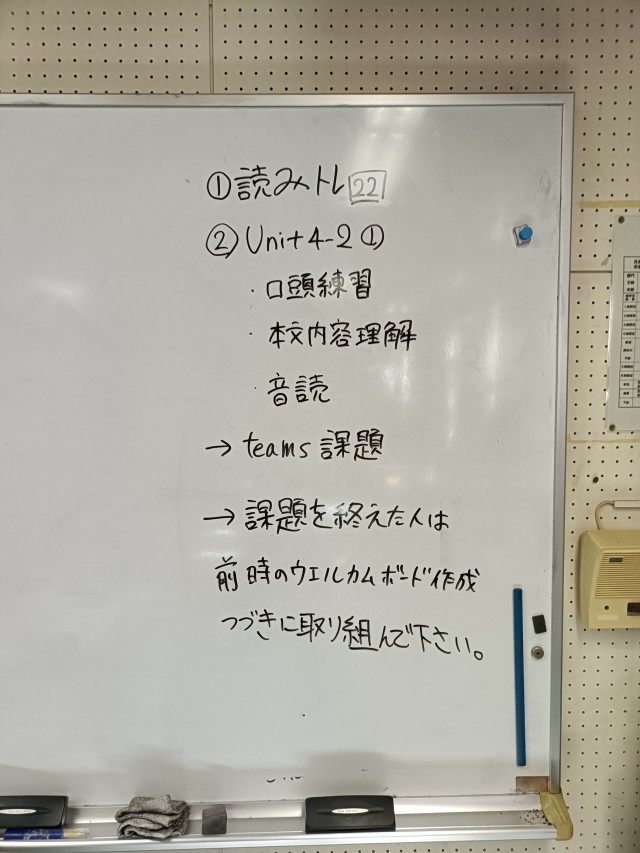 ①読みトレ22
②Unit4-2①
・口頭練習
・本文内容理解
・音読
→teams課題
→課題を終えた人は
前時のウエルカムボード作成
つづきに取り組んで下さい。